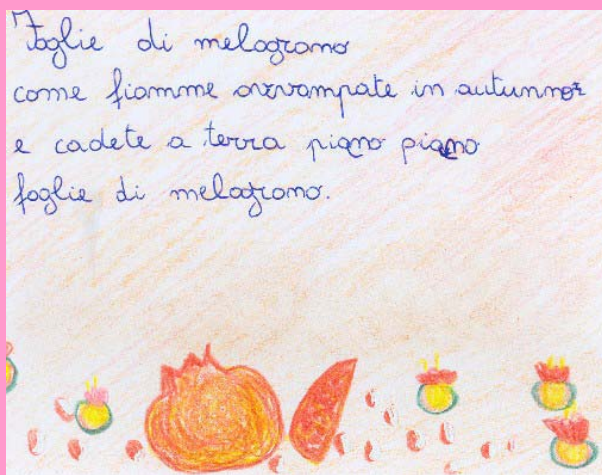 Foglie di melograno
come fiamme avvampate in autunno
e cadete a terra piano piano
foglie di melograno.